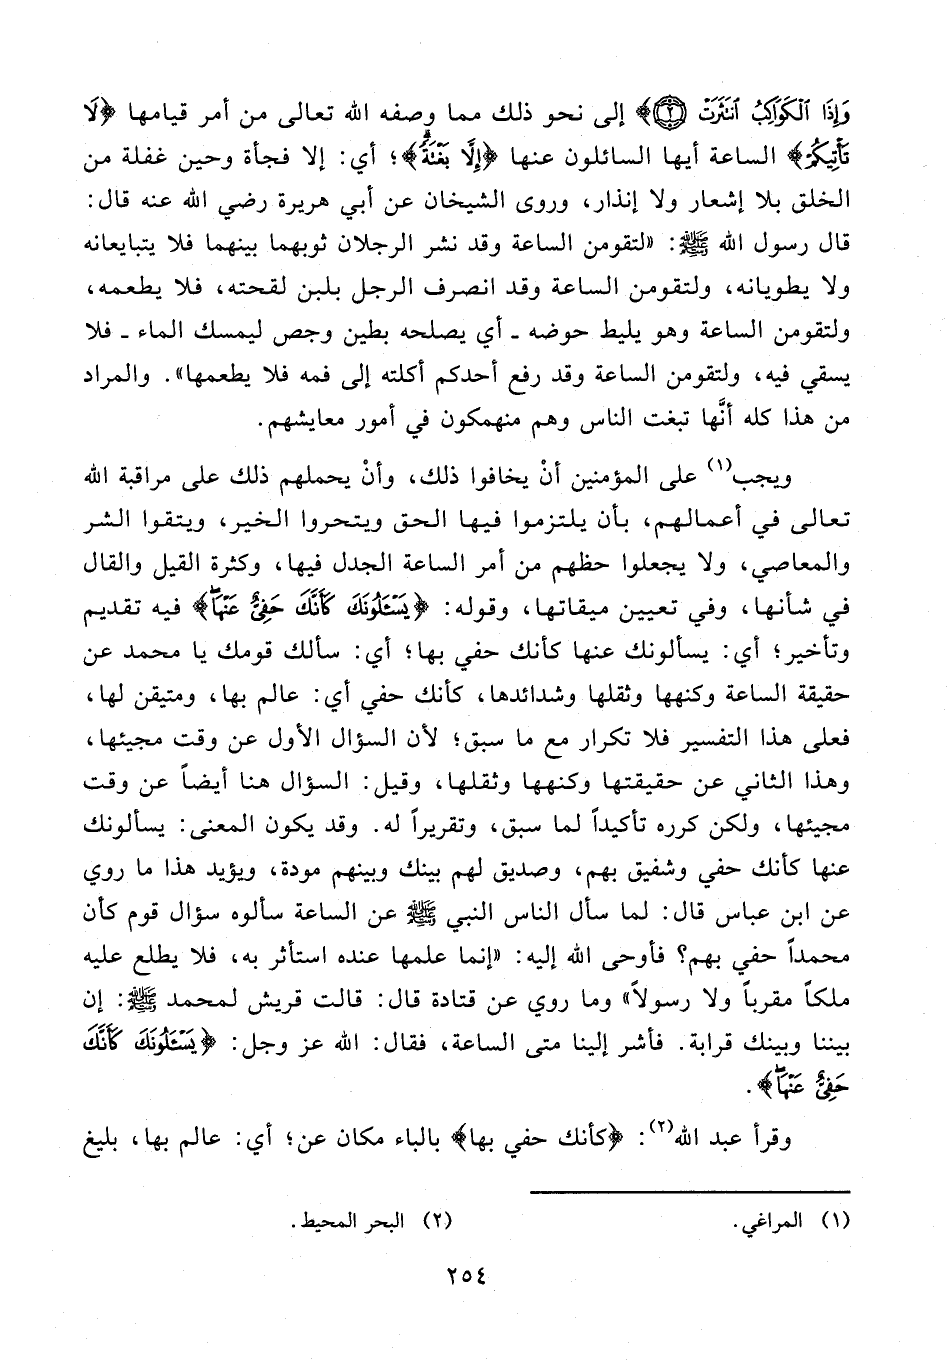 وَإِذَا ٱلْكَوَاكِبُ ٱنتَثَرَتْ ۝٢﴾ إلى نحو ذلك مما وصفه الله تعالى من أمر قيامها ﴿لَا
تَأْتِيكُمْ﴾ الساعة أيها السائلون عنها ﴿إِلَّا بَغْتَةً﴾؛ أي: إلا فجأة وحين غفلة من
الخلق بلا إشعار ولا إنذار، وروى الشيخان عن أبي هريرة رضي الله عنه قال:
قال رسول الله ﷺ: «لتقومن الساعة وقد نشر الرجلان ثوبهما بينهما فلا يتبايعانه
ولا يطويانه، ولتقومن الساعة وقد انصرف الرجل بلبن لقحته، فلا يطعمه،
ولتقومن الساعة وهو يليط حوضه ـ أي يصلحه بطين وجص ليمسك الماء ـ فلا
يسقي فيه، ولتقومن الساعة وقد رفع أحدكم أكلته إلى فمه فلا يطعمها». والمراد
من هذا كله أنَّها تبغت الناس وهم منهمكون في أمور معايشهم.
ويجب(١) على المؤمنين أنْ يخافوا ذلك، وأنْ يحملهم ذلك على مراقبة الله
تعالى في أعمالهم، بأن يلتزموا فيها الحق ويتحروا الخير، ويتقوا الشر
والمعاصي، ولا يجعلوا حظهم من أمر الساعة الجدل فيها، وكثرة القيل والقال
في شأنها، وفي تعيين ميقاتها، وقوله: ﴿يَسْـَٔلُونَكَ كَأَنَّكَ حَفِىٌّ عَنْهَاۖ﴾ فيه تقديم
وتأخير؛ أي: يسألونك عنها كأنك حفي بها؛ أي: سألك قومك يا محمد عن
حقيقة الساعة وكنهها وثقلها وشدائدها، كأنك حفي أي: عالم بها، ومتيقن لها،
فعلى هذا التفسير فلا تكرار مع ما سبق؛ لأن السؤال الأول عن وقت مجيئها،
وهذا الثاني عن حقيقتها وكنهها وثقلها، وقيل: السؤال هنا أيضاً عن وقت
مجيئها، ولكن كرره تأكيداً لما سبق، وتقريراً له. وقد يكون المعنى: يسألونك
عنها كأنك حفي وشفيق بهم، وصديق لهم بينك وبينهم مودة، ويؤيد هذا ما روي
عن ابن عباس قال: لما سأل الناس النبي ﷺ عن الساعة سألوه سؤال قوم كأن
محمداً حفي بهم؟ فأوحى الله إليه: «إنما علمها عنده استأثر به، فلا يطلع عليه
ملكاً مقرباً ولا رسولاً» وما روي عن قتادة قال: قالت قريش لمحمد ﷺ: إن
بيننا وبينك قرابة. فأشر إلينا متى الساعة، فقال: الله عز وجل: ﴿يَسْـَٔلُونَكَ كَأَنَّكَ
حَفِىٌّ عَنْهَاۖ﴾.
وقرأ عبد الله(٢): ﴿كأنك حفي بها﴾ بالباء مكان عن؛ أي: عالم بها، بليغ
(١) المراغي. (٢) البحر المحيط.
٢٥٤